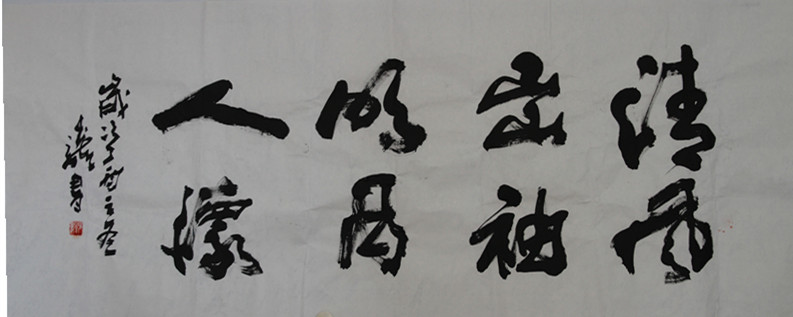 清風
出袖
明月
入懷
歲次丁酉之冬
書